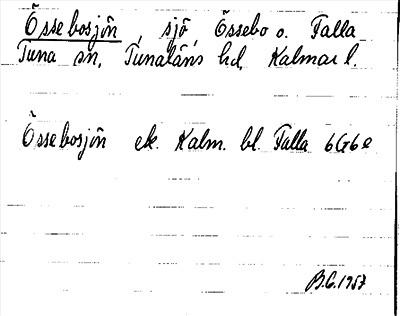 Össebosjön, sjö, Össebo o. Falla
Tuna sn, Tunaläns hd, Kalmar l.
Össebosjön ek. Kalm. bl. Falla 6G6e
B.G. 1957